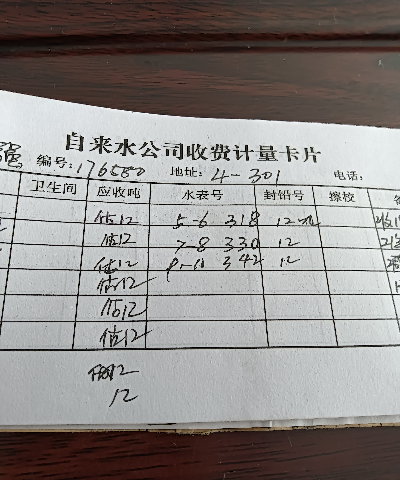 自来水公司收费计量卡片
强 编号:176580 地址:4-301 电话:
卫生间 应收吨 水表号 封铅号 擦校
估12 5-6 318 12
估12 7-8 330 12
估12 9-10 342 12
估12
估12
估12
12
12